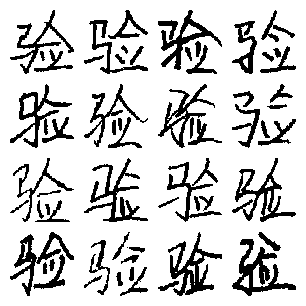 验验验验
验验验验
验验验验
验验验验